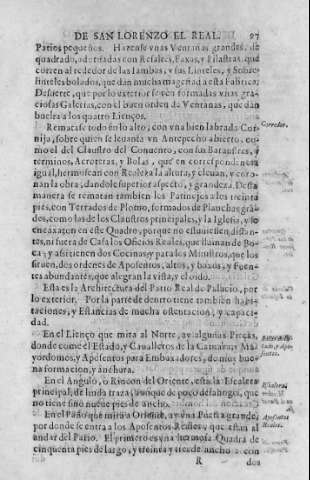 DE SAN LORENZO EL REAL. 97
Patios pequeños. Hazense vnas Ventanas grandes, de
quadrado, adornadas con Resaltos, Faxas, y Pilastras, que
corren al rededor de las Iambas, y sus Linteles, y Sobre-
linteles bolados, que dan mucha magestad a esta Fabrica;
De suerte, que por lo exterior se ven formadas vnas gra-
ciosas Galerias, con el buen orden de Ventanas, que dan
buelta a los quatro Lienços.
Corredor.
Rematase todo en lo alto, con vna bien labrada Cor-
nija, sobre quien se leuanta vn Antepecho abierto, co-
mo el del Claustro del Conuento, con sus Baraustres, y
terminos, Acroteras, y Bolas, que en correspondencia
igual, hermosean con Realeza la altura, y eleuan, y coro-
nan la obra, dandole superior aspecto, y grandeza. Desta
manera se rematan tambien los Patinejos a los treinta
pies, con Terrados de Plomo, formados de Planchas gran-
des, como las de los Claustros principales, y la Iglesia, y se
encaxaron en este Quadro, porque no estuuiessen distan-
tes, ni fuera de Casa los Oficios Reales, que llaman de Bo-
ca; y assi tienen dos Cocinas, y para los Ministros, que los
siruen, dos ordenes de Aposentos, altos, y baxos, y Fuen-
tes abundantes, que alegran la vista, y el oido.
Esta es la Architectura del Patio Real de Palacio, por
lo exterior. Por la parte de dentro tiene tambien habi-
taciones, y Estancias de mucha ostentacion, y capaci-
dad.
En el Lienço que mira al Norte, ay algunas Pieças,
donde come el Estado, y Caualleros de la Camara, y Ma-
yordomos, y Aposentos para Embaxadores, de muy bue-
na formacion, y anchura.
En el Angulo, o Rincon del Oriente, esta la Escalera
principal, de linda traza, aunque de poco desahogo, que
no tiene sino nueue pies de ancho.
Escalera
Aposentos
Reales.
En el Paño que mira a Oriente, ay vna Puerta grande,
por donde se entra a los Aposentos Reales, que estan al
andar del Patio. El primero es vna hermosa Quadra de
cinquenta pies de largo, y treinta y siete de ancho con
R dos